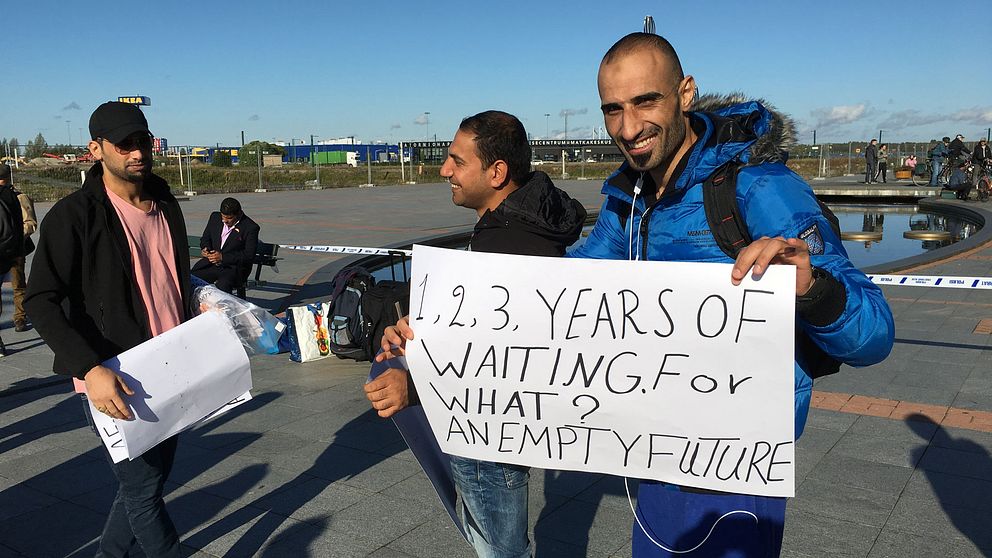 IKEA
1, 2, 3, YEARS OF
WAITING. For
WHAT?
AN EMPTY FUTURE